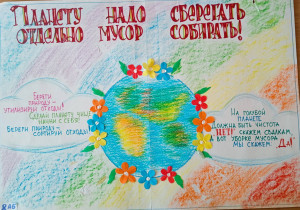 Планету надо сберегать
отдельно мусор собирать!
Береги
природу –
утилизируй отходы!
Сделай планету чище
начни с себя!
Береги природу –
сортируй отходы
На голубой
планете
должна быть чистота
НЕТ! скажем свалкам,
а вот уборке мусора
мы скажем: Да!